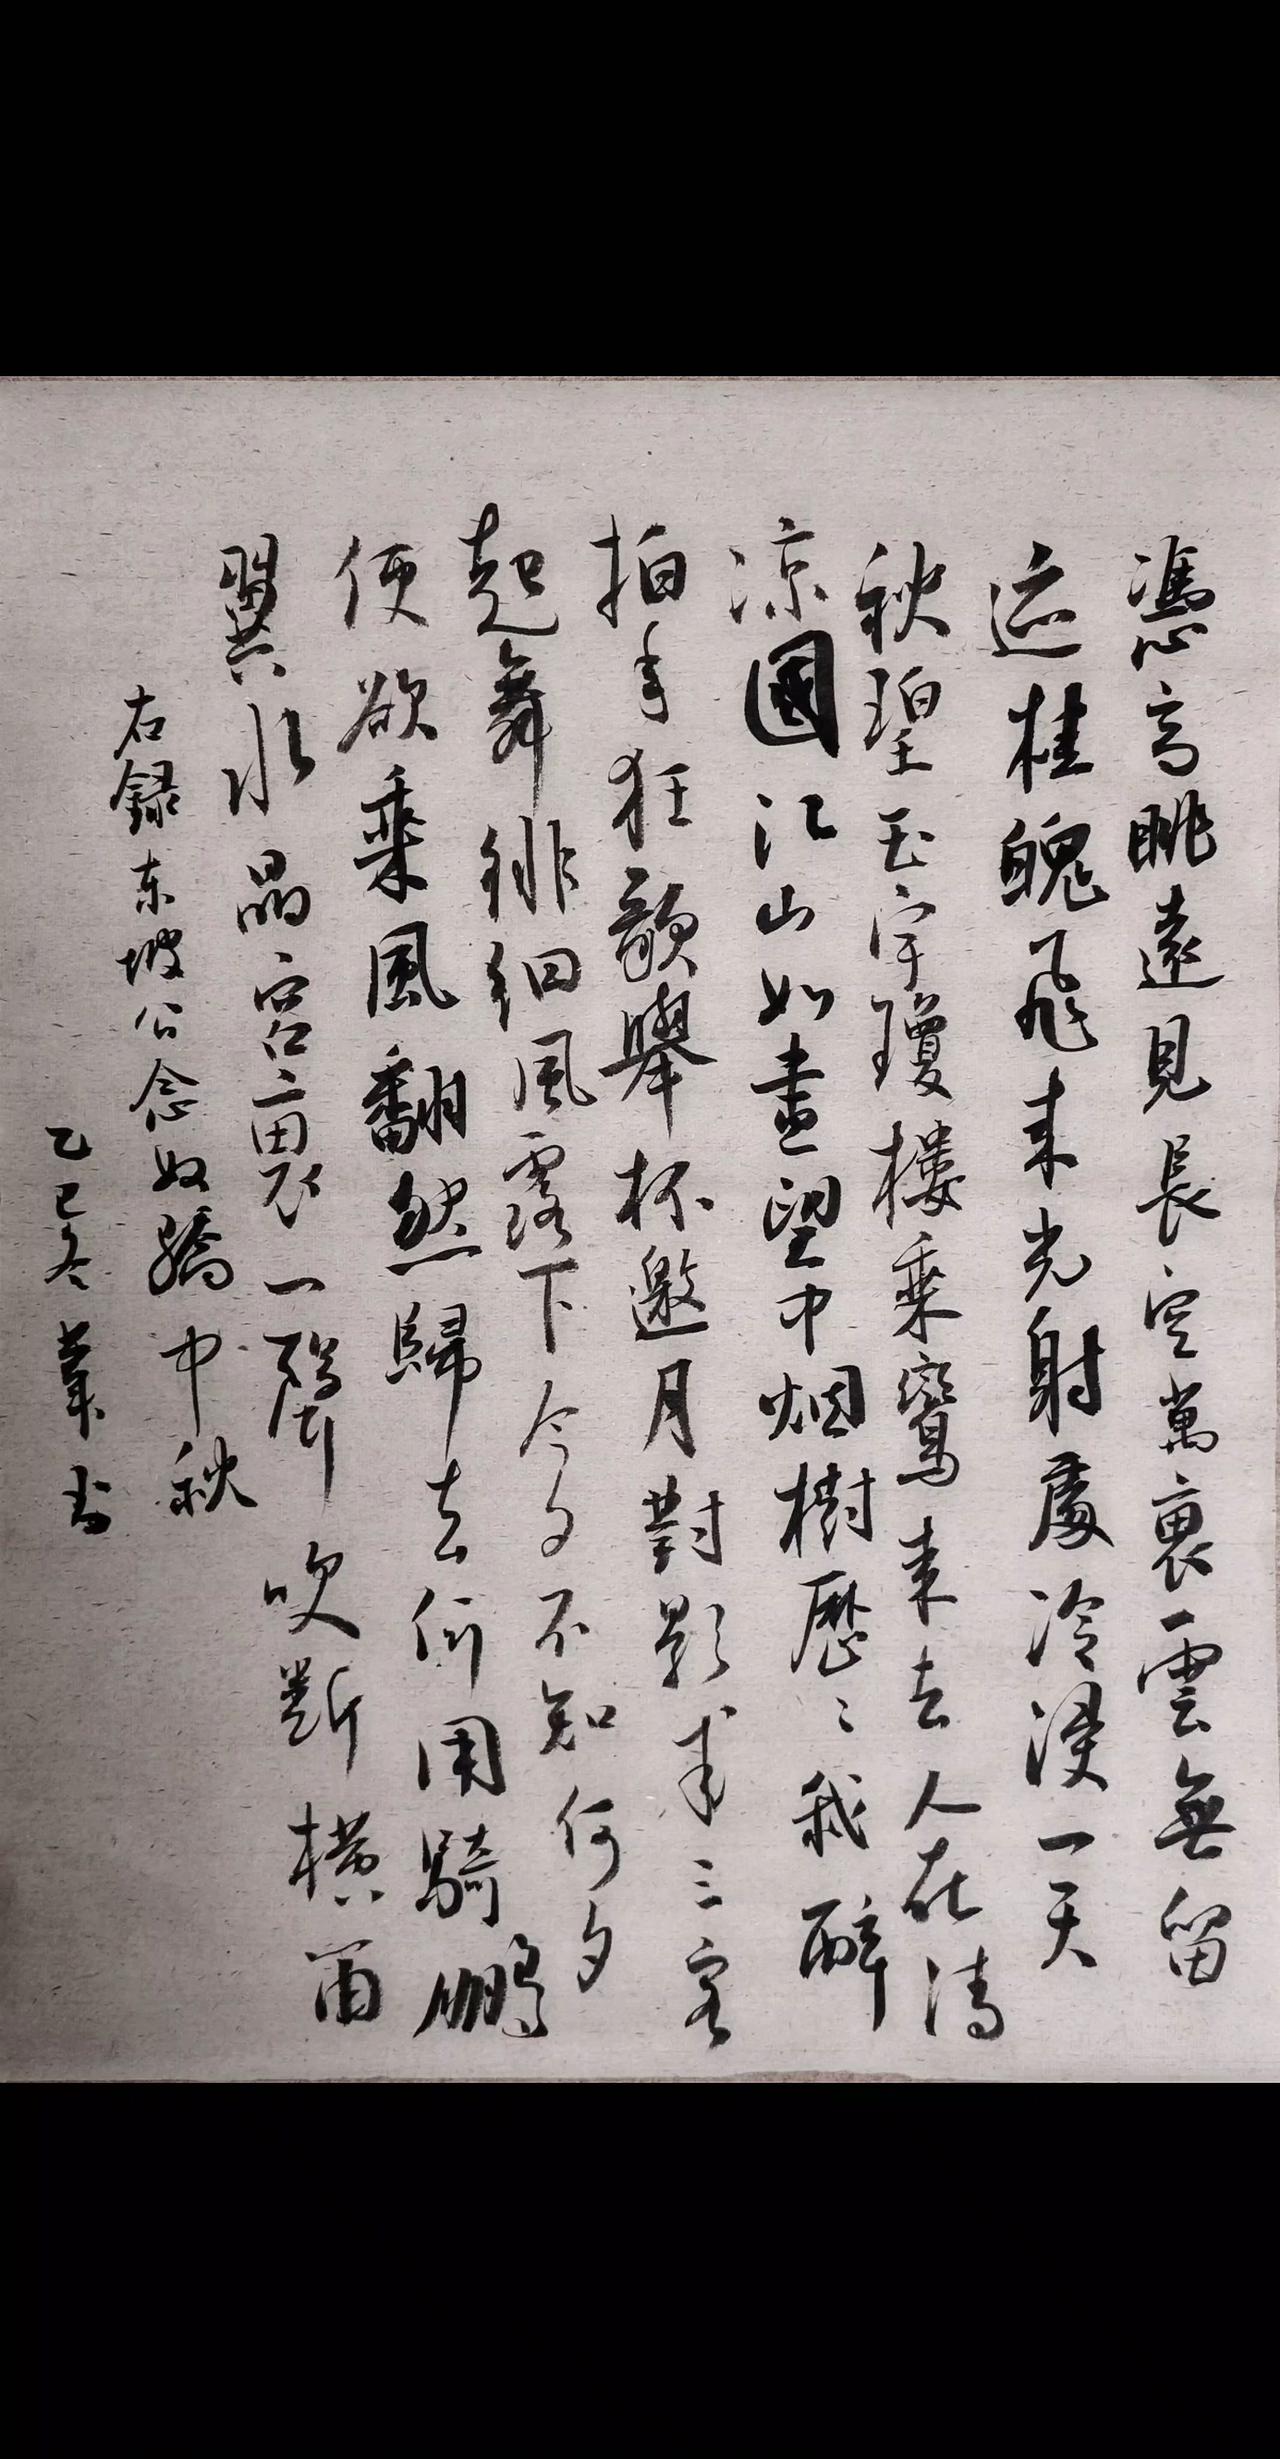 憑高眺遠見長空萬裏雲無留
迹桂魄飛来光射處冷浸一天
秋碧玉宇瓊樓乘鸞来去人在清
凉國江山如畫望中烟樹歷〻我醉
拍手狂歌舉杯邀月對影成三客
起舞徘徊風露下今夕不知何夕
便欲乘風翻然歸去何用騎鵬
翼水晶宮裏一聲吹斷横笛
右録东坡公念奴嬌中秋
乙巳冬书